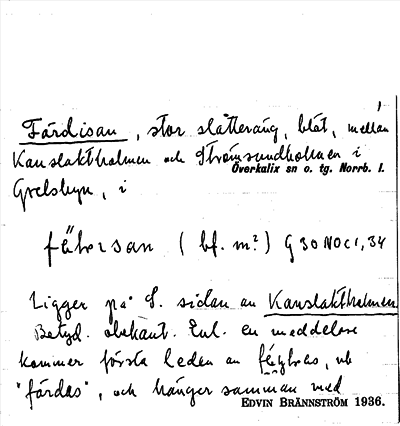 Färdisan, stor slåtteräng, blöt, mellan
Kanslaktholmen och Strömsundholmen i
Överkalix sn o. tg. Norrb. l.
Grelsbyn, i
(bf. m?) G 30 NO C 1, 34
Ligger på S. sidan av Kanslaktholmen
Betyd. obekant. Enl. en meddelare
kommer första leden av
"färdas", och hänger samman med
EDVIN BRÄNNSTRÖM 1936.